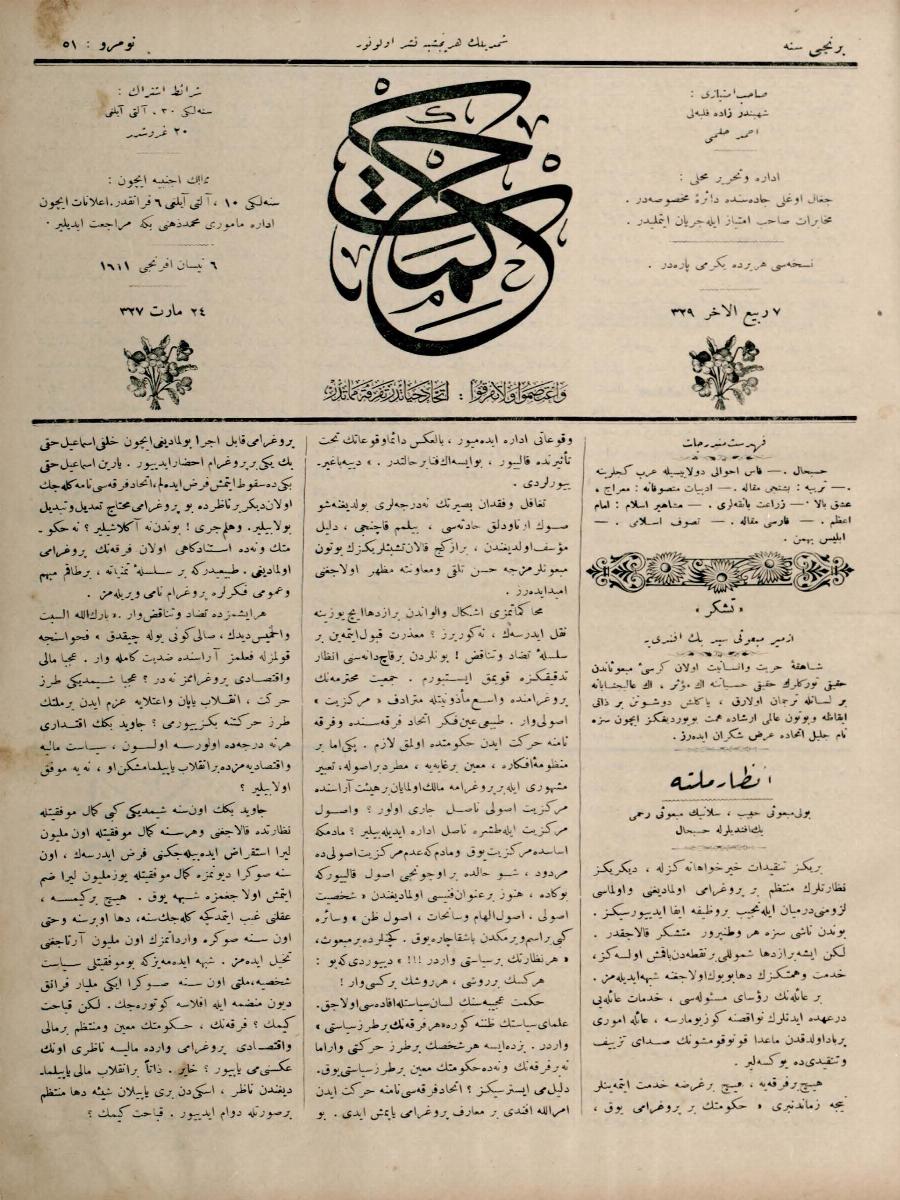 برنجی سنه
شمدیلك هر پنجشنبه نشر اولونور
نومرو : ٥١
صاحب امتیازی :
شهبندر زاده فلبه‌لی
احمد حلمی
اداره و تحریر محلی :
جغال اوغلی جاده‌سنده دائرهٔ مخصوصه‌در .
مخابرات صاحب امتیاز ایله جریان ایتملیدر .
نسخه‌سی هر یرده یكرمی پاره‌در .
٧ ربیع الاخر ٣٢٩
حكمت
واعتصموا ولا تفرقوا : اتحاد حیاتدر تفرقه مماتدر
شرائط اشتراك :
سنه‌لكی ٣٠ ، آلتی آیلغی
٢٠ غروشدر
ممالك اجنبیه ایچون :
سنه‌لكی ١٠ ، آلتی آیلغی ٦ فرانقدر. اعلانات ایچون
اداره مأموری محمد ذهنی بكه مراجعت ایدیلیر .
٦ نیسان افرنجی ١٩١١
٢٤ مارت ٣٢٧
فهرست مندرجات
حسبحال .— فاس احوالی دولاییسیله عرب كنجلرینه
.— تربیه : بشنجی مقاله .— ادبیات متصوفانه : معراج ،
عشق بالا .— زراعت بانقه‌لری .— مشاهیر اسلام : امام
اعظم .— فارسی مقاله .— تصوف اسلامی .—
ابلیس بهمن .
« تشكر »
ازمیر مبعوثی سید بك افندی یه
شاهقهٔ حریت و انسانیت اولان كرسئ مبعوثاندن
حقیقی توركلرك حقیقی حسیاتنه اك مؤثر ، اك عالیجنابانه
بر لسانله ترجمان اولارق ، یاكلش دوشونن بر ذاتی
ایقاظه و بوتون عالمی ارشاده همت بویوردیغكز ایچون سزه
نام جلیل اتحاده عرض شكران ایده‌رز .
انظار ملته
بولی مبعوثی حبیب ، سلانیك مبعوثی رحمی
بك افندیلرله حسبحال
بریكز تنقیدات خیرخواهانه كزله ، دیكریكز
نظارتلرك منتظم بر پروغرامی اولمادیغی و اولماسی
لزومنی درمیان ایله نجیب بر وظیفه ایفا ایدییورسیكز .
بوندن ناشی سزه هر وطنپرور متشكر قالاجقدر .
لكن ایشه برازدها شموللی بر نقطه‌دن باقش اولسه‌كز،
خدمت و همتكزك دها بویوك اولاجغنه شبهه ایدیله‌مز .
بر عائله‌نك رؤسای مسئوله‌سی ، خدمات عائله‌یی
درعهده ایدنلرك نواقصنه كوز یومارسه ، عائله اموری
برباد اولدقدن ماعدا قونوقومشونك صدای تزییف
و تنقیدی ده یوكسه‌لیر.
هیچ بر فرقه‌یه ، هیچ بر غرضه خدمت ایتمه‌ینلر
نیجه زماندنبری « حكومتك بر پروغرامی یوق ،
وقوعاتی اداره ایده‌میور ، بالعكس دائما وقوعاتك تحت
تأثیرنده قالییور ، بو ایسه اك فنا بر حالتدر . » دییه باغیر-
ییورلردی .
تغافل و فقدان بصیرتك نه‌درجه‌لری بولدیغنه شو
صوك ارناودلق حادثه‌سی ، بیلمم قاچنجی ، دلیل
مؤسف اولدیغندن ، براز كچ قالان تشبثلریكزك بوتون
مبعوثلرمزجه حسن تلقی و معاونته مظهر اولاجغنی
امید ایده‌رز .
محاكماتمزی اشكال و الواندن برازدها ایچ یوزینه
نقل ایدرسه‌ك ، نه كوریرز ؟ معذرت قبول ایتمه‌ین بر
سلسلهٔ تضاد و تناقض ! بونلردن بر قاچ دانه‌سنی انظار
تدقیقكزه قویمق ایستیورم . جمعیت محترمه‌نك
پروغرامنده واسع مأذونیتله مترادف « مركزیت »
اصولی وار . طبیعی عین فكر اتحاد فرقه‌سنده و فرقه
نامنه حركت ایدن حكومتده اولمق لازم . پكی اما بر
منظومهٔ افكاره ، معین بر غایه‌یه ، مطرد بر اصوله، تعبیر
مشهوری ایله بر پروغرامه مالك اولمایان بر هیئت آراسنده
مركزیت اصولی ناصل جاری اولور ؟ واصول
مركزیت ایله طشره ناصل اداره ایدیله‌بیلیر ؟ مادمكه
اساسده مركزیت یوق و مادم كه عدم مركزیت اصولی ده
مردود ، شو حالده بر اوچونجی اصول قالییور كه
بوكا ده ، هنوز بر عنوان فنیسی اولمادیغندن « شخصیت
اصولی ، اصول الهام و سانحات ، اصول ظن » و سائره
كبی بر اسم ویرمكدن باشقا چاره یوق . كچنلرده بر مبعوث،
« هر نظارتك بر سیاستی واردر !!! » دییوردی كه بو :
هر كسك بر روشی ، هر روشك بر كسی وار !
حكمت عجیبه سنك لسان سیاستله افاده‌سی اولاجق.
علمای سیاستك ظننه كوره « هر فرقه‌نك بر طرز سیاستی »
واردر . بزده ایسه هر شخصك بر طرز حركتی وار اما
نه بر فرقه‌نك و نه ده حكومتك معین بر طرز سیاستی یوق.
دلیل می ایستر سیكز ؟ اتحاد فرقه‌سی نامنه حركت ایدن
امرالله افندی بر معارف پروغرامی یاپمش ایدی . بو
پروغرامی قابل اجرا بولمادیغی ایچون خلفی اسماعیل حقی
بك یكی بر پروغرام احضار ایدییور . یارین اسماعیل حقی
بك ده سقوط ایتمش فرض ایده‌لم، اتحاد فرقه‌سی نامنه كله‌جك
اولان دیكر بر ناظر ده بو پروغرامی محتاج تعدیل و تبدیل
بولا بیلیر . وهلم جری ! بوندن نه آكلاشیلیر ؟ نه حكو-
متك و نه ده استنادكاهی اولان فرقه‌نك پروغرامی
اولمادیغی . طبیعیدر كه بر سلسلهٔ تمنیاته ، بر طاقم مبهم
و عمومی فكرلره پروغرام نامی ویریله‌مز .
هر ایشمزده تضاد و تناقض وار . « بارك الله السبت
والخمیس دیدك، صالی كونی یوله چیقدق » فحواسنجه
قولمزله فعلمز آراسنده ضدیت كامله وار . عجبا مالی
و اقتصادی پروغرامز نه‌در ؟ عجبا شیمدیكی طرز
حركت ، انقلاب یاپان و اعتلایه عزم ایدن بر ملتك
طرز حركتنه بكزییورمی ؟ جاوید بكك اقتداری
هر نه درجه‌ده اولورسه اولسون ، سیاست مالیه
و اقتصادیه‌مزده بر انقلاب یاپیلمامشكن او ، نه‌یه موفق
اولا بیلیر ؟
جاوید بكك اون سنه شیمدیكی كبی كمال موفقیتله
نظارتده قالاجغنی و هر سنه كمال موفقیتله اون ملیون
لیرا استقراض ایده‌بیله‌جكنی فرض ایدرسه‌ك ، اون
سنه صوكرا دیونمزه كمال موفقیتله یوز ملیون لیرا ضم
ایتمش اولاجغمزه شبهه یوق . هیچ بر كیمسه ،
عقلنی غیب ایتمدكجه كله‌جك سنه، دها اوبر سنه و حتی
اون سنه صوكره وارداتمزك اون ملیون آرتاجغنی
تخیل ایده‌مز . شبهه ایده‌مه‌یز كه بو موفقیتلی سیاست
شخصیه، ملتی اون سنه صوكرا ایكی ملیار فرانق
دیون منضمه ایله افلاسه كوتوره‌جك . لكن قباحت
كیمك ؟ فرقه‌نك ، حكومتك معین و منتظم بر مالی
و اقتصادی پروغرامی وارده مالیه ناظری اونك
عكسنی می یاپیور ؟ خایر . ذاتاً بر انقلاب مالی یاپیلما-
دیغندن ناظر ، اسكی‌دن بری یاپیلان شیئه دها منتظم
بر صورتله دوام ایدییور . قباحت كیمك ؟